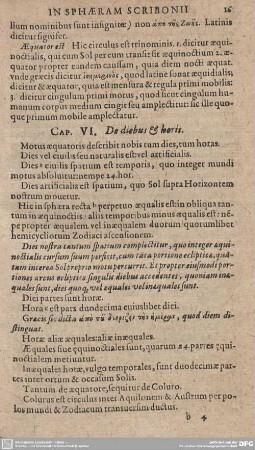 IN SPHÆRAM SCRIBONII 16
llum nominibus sunt insignitæ) non ἀπὸ τῆς ζωῆς. Latinis
dicitur signifer.
Æquator est Hic circulus est trinominis. 1. dicitur æqui-
noctialis, qui cum Sol per eum transit sit æquinoctium 2. æ-
quator propter eandem causam, quia diem nocti æquat.
vnde græcis dicitur ἰσημερινὸς, quod lacine sonat æquidialis,
aut diei æqualis, quia est mensura & regula primi mobilis
3. dicitur cingulum primi motus, quod sicut cingulum hu-
manum corpus medium cingit seu amplectitur: sic ille quo-
que primum mobile amplectatur.
CAP. VI. De diebus & horis.
Motus æquatoris describit nobis tum dies, tum horas.
Dies vel ciuilis seu naturalis est vel artificialis.
Dies ciuilis spatium est temporis, quo integer mundi
motus absoluitur: nempe 24. hor.
Dies artificialis est spatium, quo Sol supra Horizontem
nostrum mouetur.
Hic in sphæra recta perpetuo æqualis est in obliqua tan-
tum in æquinoctiis: aliis temporibus minus æqualis est: ne-
pe propter æqualem vel inæqualem duorum quorumlibet
hemicycliorum Zodiaci ascensionem.
Dies nostra tantum spatium complectitur, quo integer æqui-
noctialis cursum suum perficit, cum tanta portione ecliptica, quā-
tum interea Sol proprio motu percurrit. Et propter eiusmodi por-
tiones arcus ecliptica singulis diebus accedentes, quoniam inæ-
quales sunt, dies quoq, vel equales vel inæquales sunt.
Diei partes sunt horæ.
Hora est pars duodecima cuiuslibet diei.
Græcis sic dicta ἀπὸ τοῦ διορίζειν τὴν ἡμέραν, quod diem di-
stinguat.
Horæ aliæ æquales: aliæ inæquales.
Æquales siue equinoctiales sunt, quarum 24. partes equi-
noctialem metiuntur.
Inæquales horæ, vulgo temporales, sunt duodecimæ par-
tes inter ortum & occasum Solis.
Tantum de æquatore, sequitur de Coluro.
Colurus est circulus inter Aquilonem & Austrum per po-
los mundi & Zodiacum transuersim ductus.
b 4